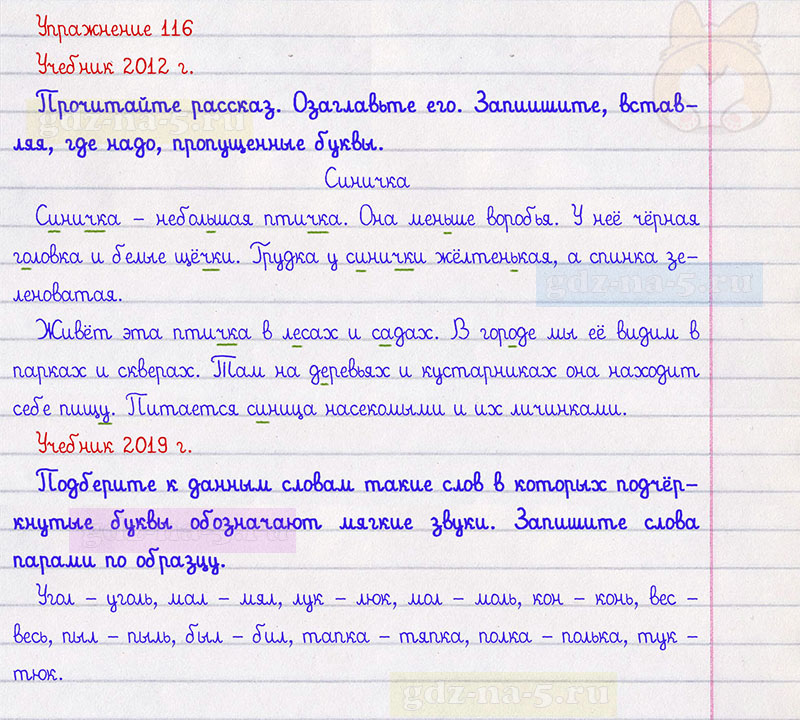 Упражнение 116
Учебник 2012 г.
Прочитайте рассказ. Озаглавьте его. Запишите, встав-
ляя, где надо, пропущенные буквы.
Синичка
Синичка – небольшая птичка. Она меньше воробья. У неё чёрная
головка и белые щёчки. Грудка у синички жёлтенькая, а спинка зе-
леноватая.
Живёт эта птичка в лесах и садах. В городе мы её видим в
парках и скверах. Там на деревьях и кустарниках она находит
себе пищу. Питается синица насекомыми и их личинками.
Учебник 2019 г.
Подберите к данным словам такие слов в которых подчёр-
кнутые буквы обозначают мягкие звуки. Запишите слова
парами по образцу.
Угол – уголь, мал – мял, лук – люк, мол – моль, кон – конь, вес –
весь, пыл – пыль, был – бил, тапка – тяпка, полка – полька, тук –
тюк.
gdz-na-5.ru
gdz-na-5.ru
gdz-na-5.ru
gdz-na-5.ru